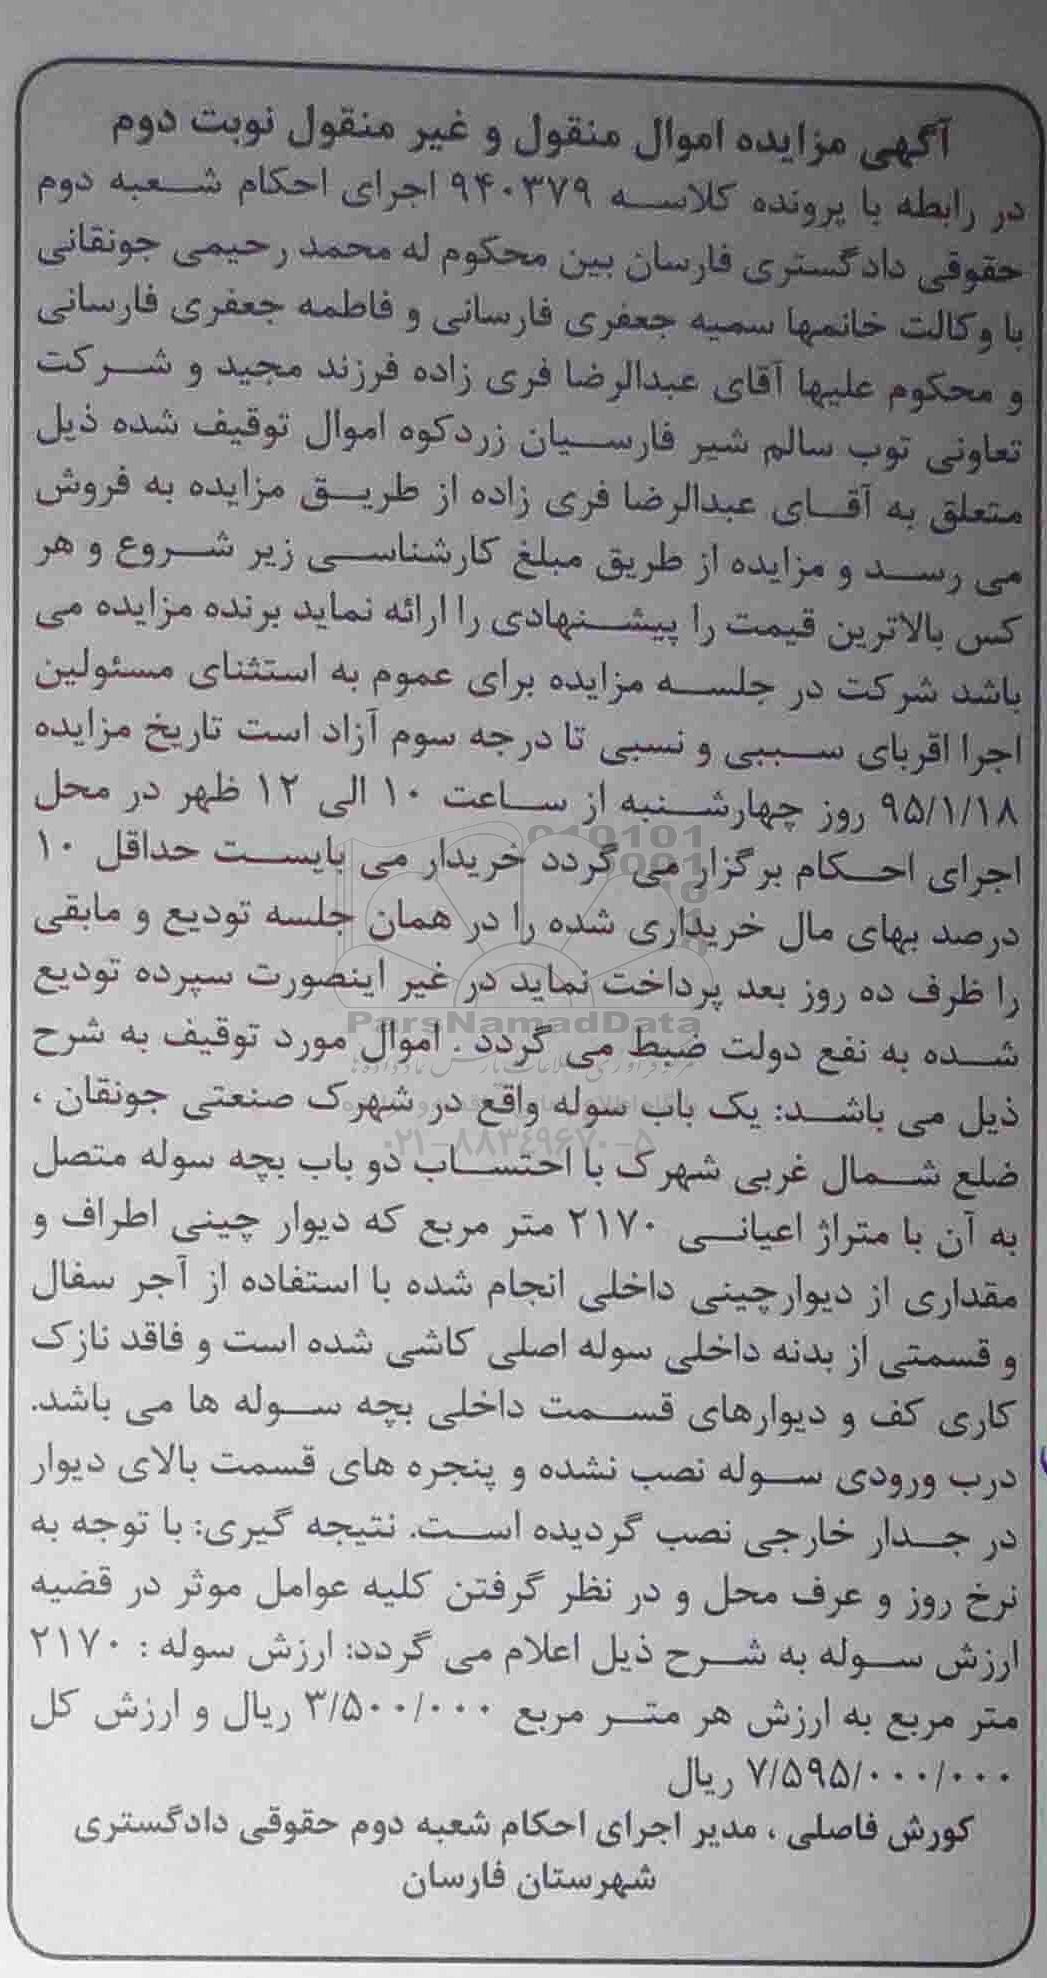 آگهی مزایده اموال منقول و غیر منقول نوبت دوم
در رابطه با پرونده کلاسه ۹۴۰۳۷۹ اجرای احکام شعبه دوم
حقوقی دادگستری فارسان بین محکوم له محمد رحیمی جونقانی
با وکالت خانمها سمیه جعفری فارسانی و فاطمه جعفری فارسانی
و محکوم علیها آقای عبدالرضا فری زاده فرزند مجید و شرکت
تعاونی توب سالم شیر فارسیان زردکوه اموال توقیف شده ذیل
متعلق به آقای عبدالرضا فری زاده از طریق مزایده به فروش
می رسد و مزایده از طریق مبلغ کارشناسی زیر شروع و هر
کس بالاترین قیمت را پیشنهادی را ارائه نماید برنده مزایده می
باشد شرکت در جلسه مزایده برای عموم به استثنای مسئولین
اجرا اقربای سببی و نسبی تا درجه سوم آزاد است تاریخ مزایده
۹۵/۱/۱۸ روز چهارشنبه از ساعت ۱۰ الی ۱۲ ظهر در محل
اجرای احکام برگزار می گردد خریدار می بایست حداقل ۱۰
درصد بهای مال خریداری شده را در همان جلسه تودیع و مابقی
را ظرف ده روز بعد پرداخت نماید در غیر اینصورت سپرده تودیع
شده به نفع دولت ضبط می گردد . اموال مورد توقیف به شرح
ذیل می باشد: یک باب سوله واقع در شهرک صنعتی جونقان ،
ضلع شمال غربی شهرک با احتساب دو باب بچه سوله متصل
به آن با متراژ اعیانی ۲۱۷۰ متر مربع که دیوار چینی اطراف و
مقداری از دیوارچینی داخلی انجام شده با استفاده از آجر سفال
و قسمتی از بدنه داخلی سوله اصلی کاشی شده است و فاقد نازک
کاری کف و دیوارهای قسمت داخلی بچه سوله ها می باشد.
درب ورودی سوله نصب نشده و پنجره های قسمت بالای دیوار
در جدار خارجی نصب گردیده است. نتیجه گیری: با توجه به
نرخ روز و عرف محل و در نظر گرفتن کلیه عوامل موثر در قضیه
ارزش سوله به شرح ذیل اعلام می گردد: ارزش سوله : ۲۱۷۰
متر مربع به ارزش هر متر مربع ۳/۵۰۰/۰۰۰ ریال و ارزش کل
۷/۵۹۵/۰۰۰/۰۰۰ ریال
کورش فاصلی ، مدیر اجرای احکام شعبه دوم حقوقی دادگستری
شهرستان فارسان
ParsNamadData
۰۲۱-۸۸۳۴۹۶۷۰-۵